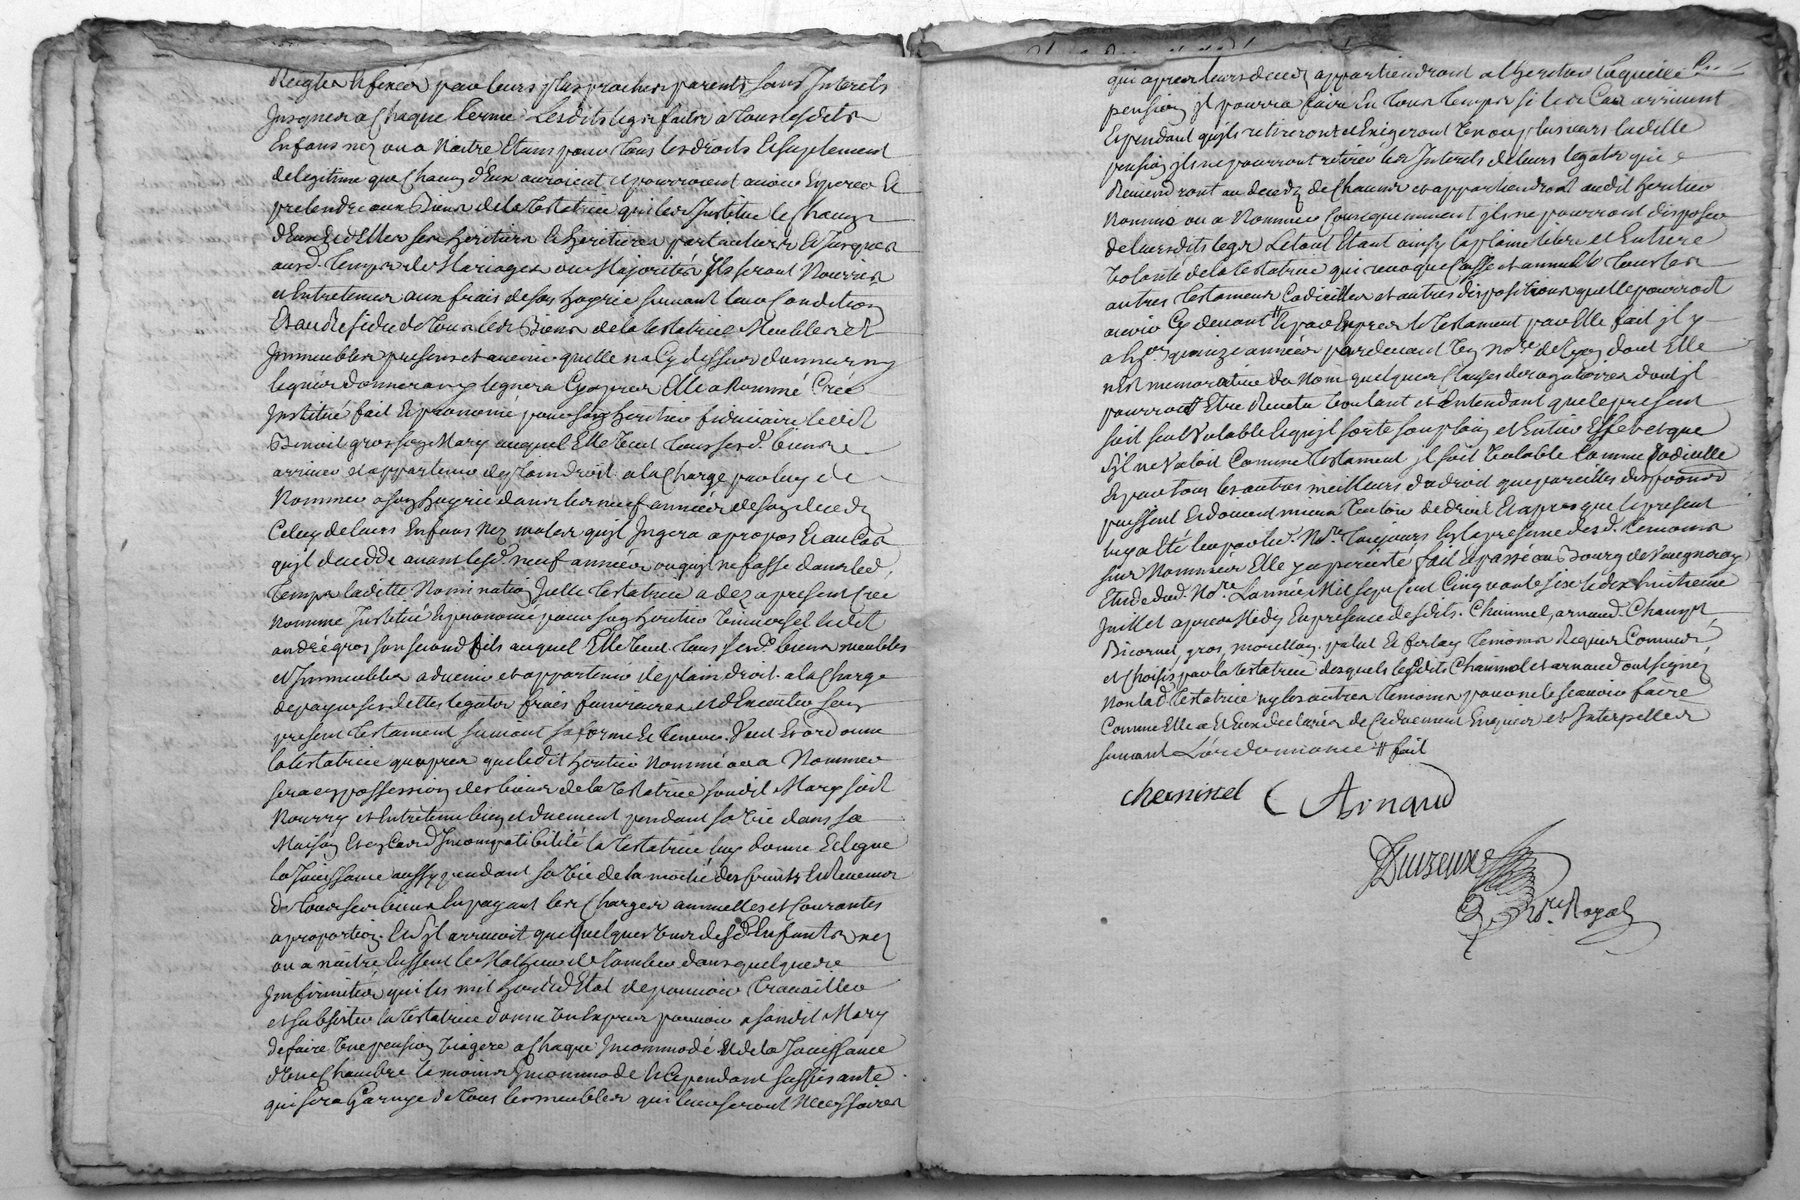 Reigler et fixer par leurs plus proches parents sans Interets
Jusques a Chaque terme. Lesdits legs faits a tous lesdits
Enfans nez ou a Naitre Etant pour tous les droits et suplement
de legitime que Chacun d'Eux auroient et pourroient avoir Esperer et
pretendre aux Biens de la testatrice qui les Institue le Chacun
d'Eux et d'Elles ses heritiers et heritieres particuliers et Jusques
aud. temps de Mariages ou Majorités Ils seront Nourris
et Entretenus aux frais de son hoyrie suivant leur Condition
Et au Residu de tous les Biens de la testatrice Meubles et
Immeubles presens et avenir quelle na Cy dessus donné ny
legué donnera ny leguera Cy apres Elle a Nommé Créé
Institué fait et prononcé pour son heritier fiduciaire ledit
Benoit gros son Mary auquel Elle veut tous sesd. biens
arriver et appartenir de plain droit a la Charge par luy de
Nommer a son hoyrie dans les neuf années de son deced
Celuy de leurs Enfans Nez males quil Jugera a propos Et au Cas
quil decedde avant lesd. neuf années ou quil ne fasse dans led.
temps laditte Nomination Icelle testatrice a dez a present Créé
Nommé Institué et prononcé pour son heritier Universel ledit
andré gros son second fils auquel Elle veut tous sesd. biens meubles
et Immeubles advenir et appartenir de plain droit a la Charge
de payer ses dettes legats frais funeraires et d'Executer son
present testament suivant sa forme et teneur. Veut Et ordonne
la testatrice quapres que ledit heritier Nommé ou a Nommer
sera en possession des biens de la testatrice sondit Mary soit
Nourry et Entretenu bien et duement pendant sa vie dans sa
Maison Et en Cas d'Incompatibilité la testatrice luy donne et legue
la Jouissance aussy pendant sa vie de la moitié des fruits et Revenus
de tous ses biens En payant les Charges annuelles et Courantes
a proportion. Et sil arrivoit que quelques uns desd. Enfants nez
ou a naitre Eussent le Malheur de tomber dans quelque
Infirmités qui les mit hors d'Etat de pouvoir travailler
et subsister la testatrice donne un Expres pouvoir a sondit Mary
de faire une pension viagere a Chaque Incommodé et de la Jouissance
d'une Chambre la moins Incommode et Cependant suffisante
qui sera Garnye de tous les meubles qui luy seront Necessaires
qui apres leurs deced appartiendront a lheritier laquelle
pension Il pourra faire En tous temps si les Cas arrivent
Et pendant quils retireront et Exigeront un ou plusieurs ladite
pension Ils ne pourront retirer les Interets de leurs legats qui
Reviendront au deced de Chacun et appartiendront audit heritier
Nommé ou a Nommer Consequemment Ils ne pourront disposer
de leursdits legs Le tout Etant ainsy la plaine libre et Entiere
Volonté de la testatrice qui revoque Casse et annulle tous les
autres testamens Codicilles et autres dispositions quelle pourroit
avoir Cy devant et par Expres le testament par Elle fait Il y
a Env. quinze années pardevant un Nore. de Lyon dont Elle
n'Est memorative du Nom quelques Clauses derogatoires dont Il
pourroit Etre Revetu Voulant et Entendant que le present
soit seul Valable et quil sorte son plain et Entier Effet et que
s'il ne Valoit Comme testament Il soit Valable Comme Codicille
Et par tous les autres meilleurs de droit que pareilles dispositions
puissent Et doivent mieux Valoir de droit Et apres que le present
luy a Eté leu par led. Nore. toujours En la presence desd. temoins
sus Nommés Elle y a persisté fait et passé au Bourg de Vaugneray
Etude dud. Nore. L'année Mil sept cent Cinquante six le dix huitieme
Juillet apres Midy En presence desdits. Charinel, arnaud. Champt,
Bicornet, gros, morellon, palut et ferlay temoins Requis Connus
et Choisis par la testatrice desquels lesdits Charinel et arnaud ont signé
Non la d. testatrice ny les autres temoins pour ne le scavoir faire
Comme Elle a Et Eux declarés de Ce duement Enquis et Interpellés
suivant L'ordonnance # fait
Arnaud
Nre. Royal